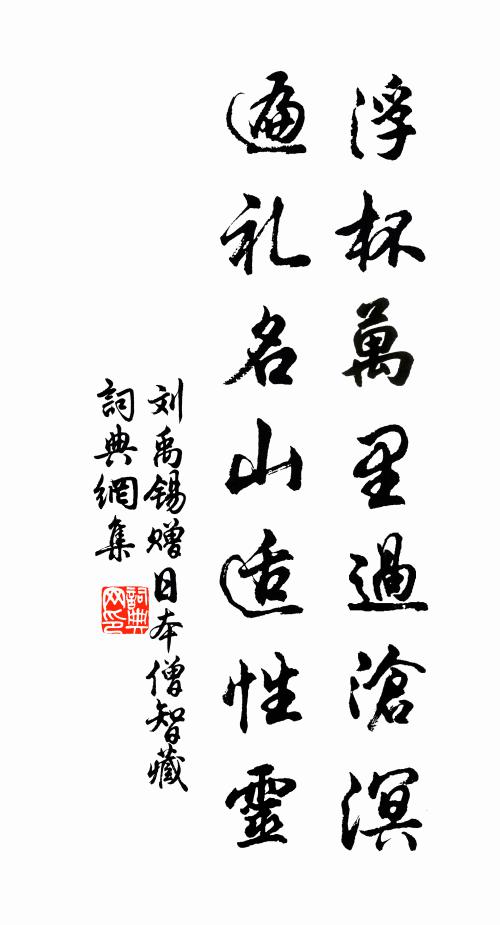 浮杯萬里過滄溟
遍礼名山适性靈
刘禹锡赠日本僧智藏
詞典網集
詞典网印